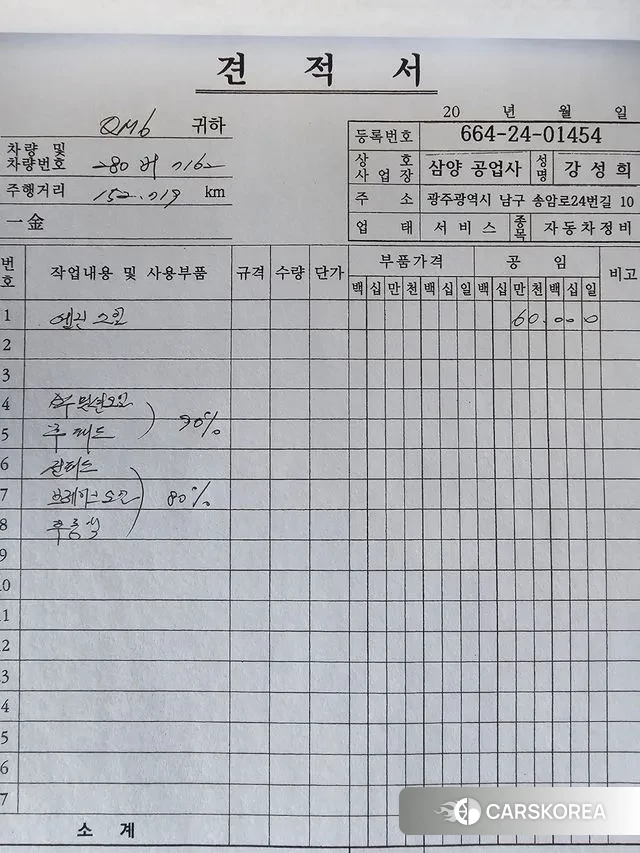 견 적 서
QM6 귀하
차량 및
차량번호
주행거리 152.719 km
一金
20 년 월 일
등록번호 664-24-01454
상 호
사업장 삼양 공업사 성명 강성희
주 소 광주광역시 남구 송암로24번길 10
업 태 서비스 종목 자동차정비
번호 작업내용 및 사용부품 규격 수량 단가 부품가격 공 임 비고
백 십 만 천 백 십 일 백 십 만 천 백 십 일
1 엔진오일 60.000
2
3
4 미션오일
5 후 패드 90%
6
7 브레이크오일 80%
8
9
0
1
2
3
4
5
6
7
소 계
CARSKOREA